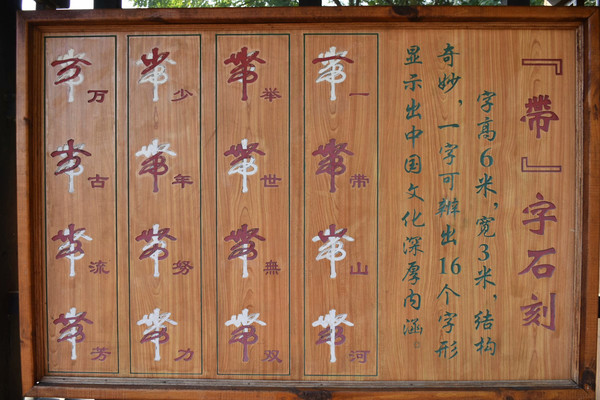 『帶』字石刻
字高6米,宽3米,结构
奇妙,一字可辨出16个字形
显示出中国文化深厚内涵
一带山河
举世無双
少年努力
万古流芳